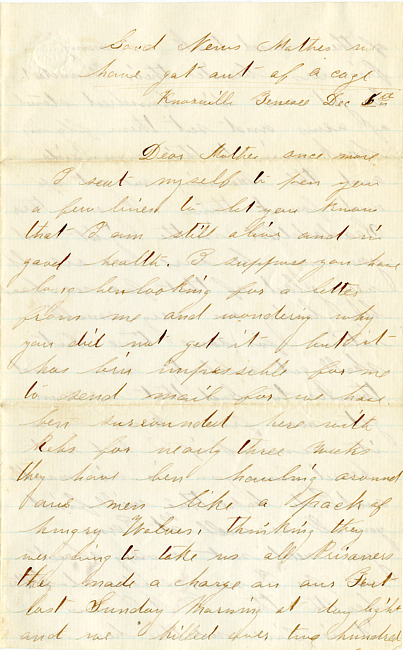 Good News Mother we
have got out of a cage
Knoxville Tenesee Dec 6th
Dear Mother once more
I seat myself to pen you
a few lines to let you know
that I am still alive and in
good health. I suppose you have
long ben looking for a letter
from me and wondering why
you did not get it but it
has bin impossable for me
to send mail for we have
ben surrounded here with
Rebs for nearly three weeks
they have ben howling around
our men like a pack of
hungry Wolves, thinking they
wer going to take us all Prisoners
they made a charge on our Fort
last Sunday Morning at day light
and we killed over two hundred